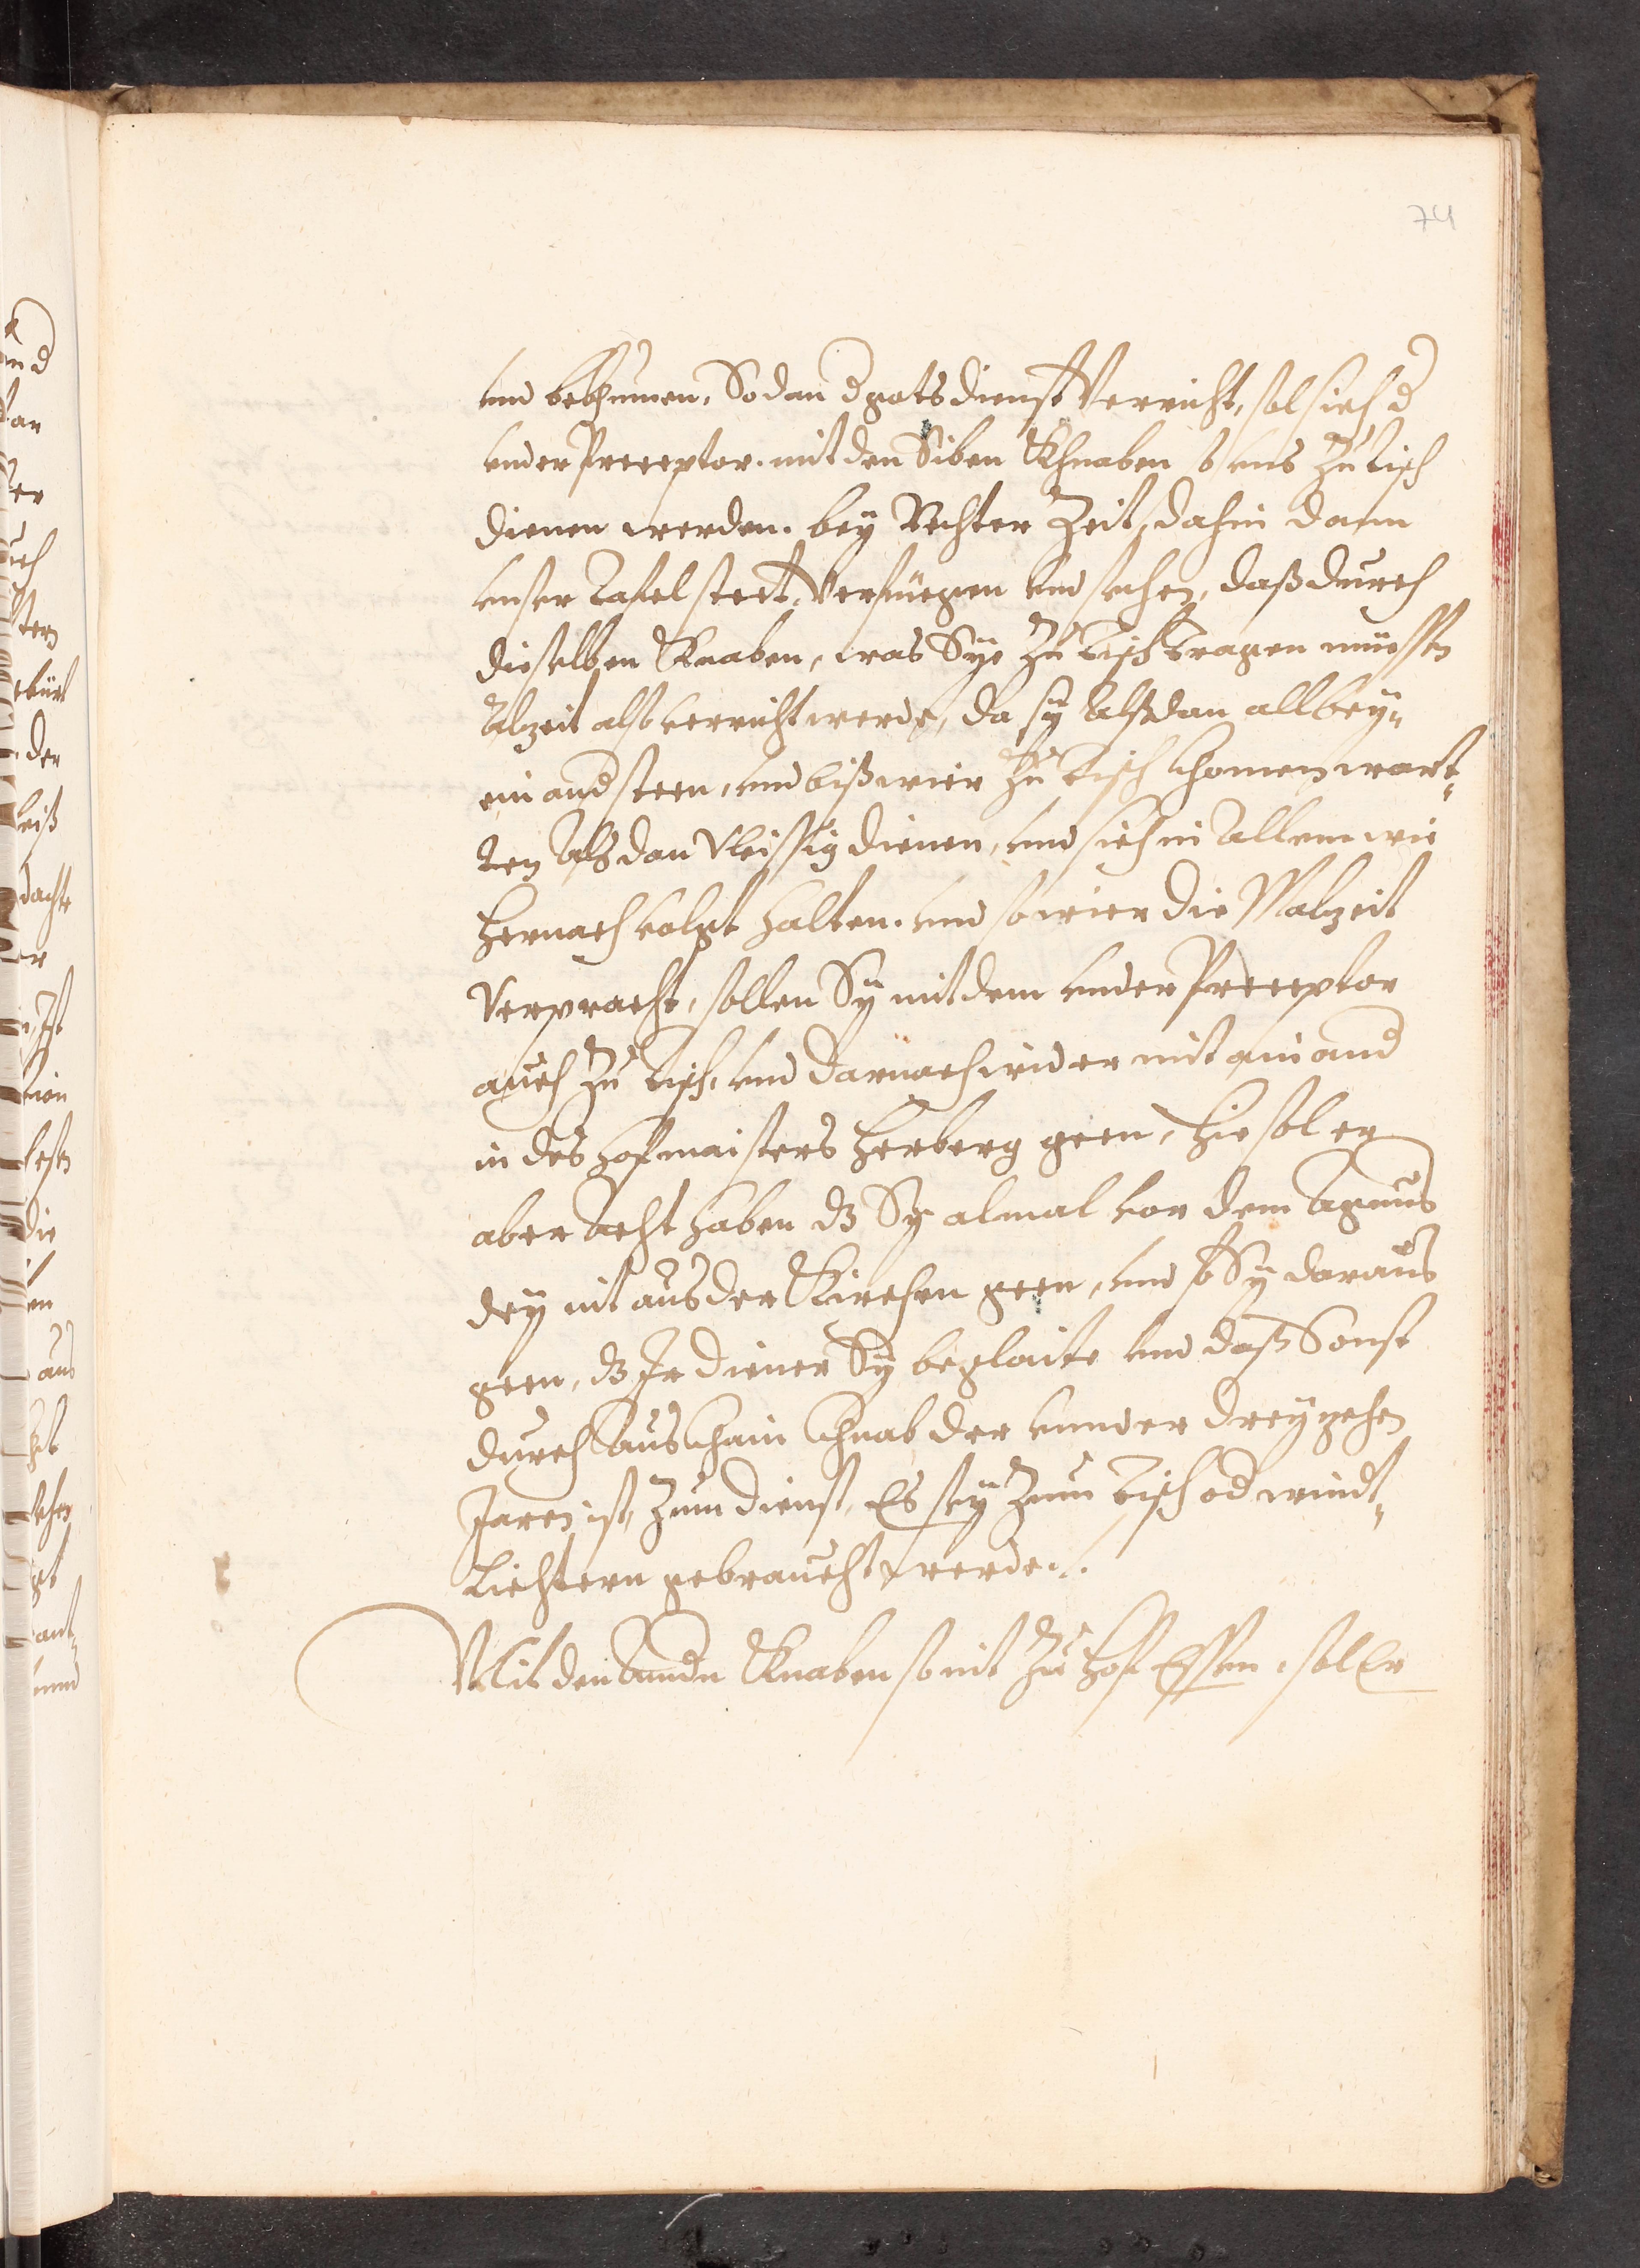 74
vnd bekhumen, So dan d gots dienst Verricht, sol sich d
vnder Preceptor mit den Siben Khnaben so vns zu tisch
dienen werden bey Rechter Zeit, dahin dann
vnser Tafel steet, verfüegen vnd sehen, daß durch
dieselben Knaben, was Sye zu tisch tragen müessen
Alzeit also verricht werde, da sy Alßdan all bey„
ein and steen, vnd biß wier zu tisch khomen wart„
ten Alsdan Vleissig dienen, vnd sich in Allem wie
hernach volgt halten. vnd so wier die Malzeit
Verpracht, sollen Sy mit dem vnder Preceptor
auch zu tisch, vnd darnach wider mit ain and
in des hofmaisters herberg geen, hie sol er
aber Acht haben dz Sy almal vor dem Agnus
dey nit aus der Kirchen geen, vnd so Sy daraus
geen, dz Ir diener Sy beglaite vnd daß Sonst
durchaus khain khnab der vnnder dreyzehen
Jaren ist, zum dienst, Es sey zum tisch od windt„
liechtern gebraucht werde.
Mit den Andn Knaben so nit zu hof Essen, sol Er